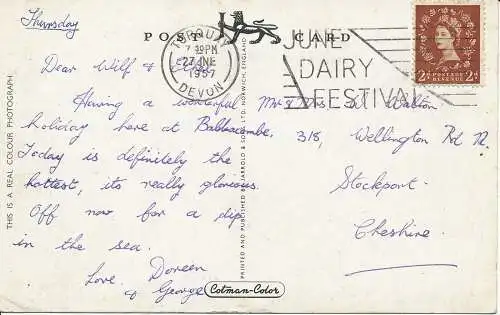 Thursday
POST CARD
TORQUAY
7 30PM
27 JNE
1957
DEVON
JUNE
DAIRY
FESTIVAL
POSTAGE
REVENUE
2D 2D
Dear Wilf &
Having a wonderful
holiday here at Babbacombe.
Today is definitely the
hottest, its really glorious.
Off now for a dip
in the sea.
Love. Doreen
& George
Mr & Mrs W Walton
318, Wellington Rd N.
Stockport.
Cheshire.
THIS IS A REAL COLOUR PHOTOGRAPH
PRINTED AND PUBLISHED BY JARROLD & SONS LTD. NORWICH, ENGLAND
Cotman-Color